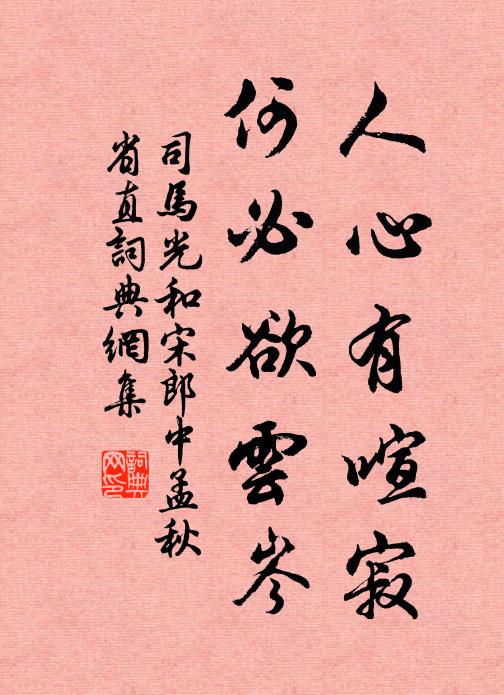 人心有喧寂
何必欲雲岑
司馬光和宋郎中孟秋
省直詞典網集
詞典
网印